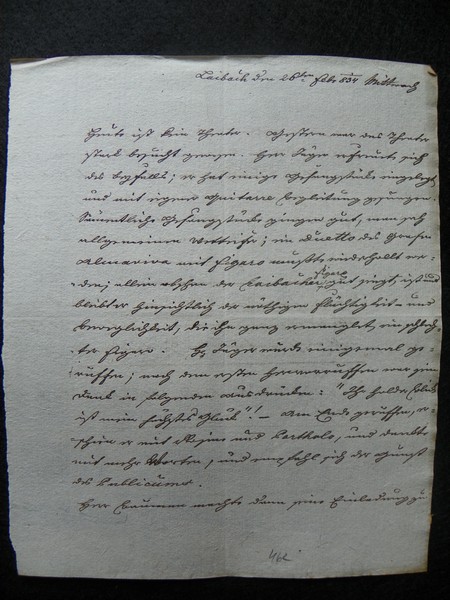 Laibach den 26ten Febr 834 Mittwoch
Heute ist kein Theater. Gestern war das Theater
stark besucht gewesen. Herr Jäger erfreute sich
des Beyfalls; er hat einige Gesangstücke eingelegt
und mit eigener Guitarre Begleitung gesungen.
Sämmtliche Gesangstücke gingen gut, man sah
allgemeinen Wetteifer; ein Duetto des Grafen
Almaviva mit Figaro mußte wiederhollt wer-
den; allein obschon der Laibacher Figaro gut singt, ist und
bleibt er hinsichtlich der nöthigen Flüchtigkeit und
Beweglichkeit, die ihm ganz ermangelt, ein schlech-
ter Figaro. H. Jäger wurde einigemal ge-
ruffen; nach dem ersten Hervorruffen war sein
Dank in folgenden Ausdrücken: "Ihr
ist mein höchstes Glück"! – Am Ende geruffen, er-
schien er mit Rosine und Bartholo, und dankte
mit mehr Worten, und empfahl sich der Gunst
des Publicums.
Herr machte dann seine Einladung zu
462